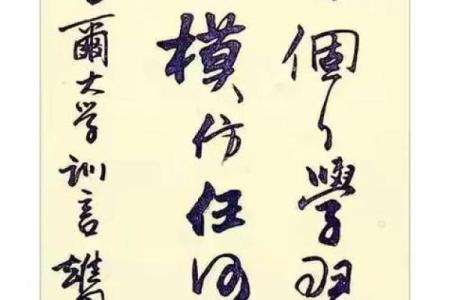 個人學習
模仿任何
爾大学訓言